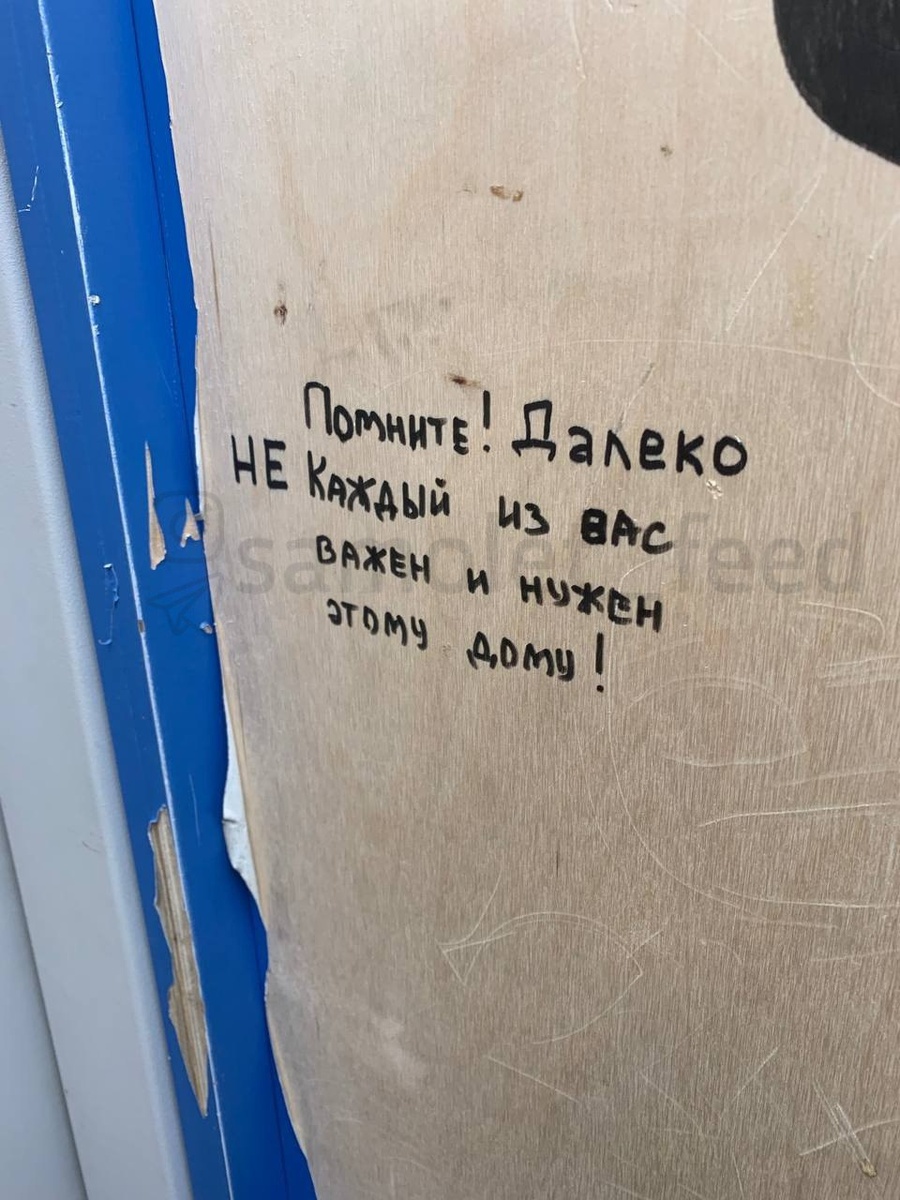 Помните! Далеко
НЕ Каждый из ВАС
ВАЖЕН и НУЖЕН
ЭТОМУ ДОМУ!